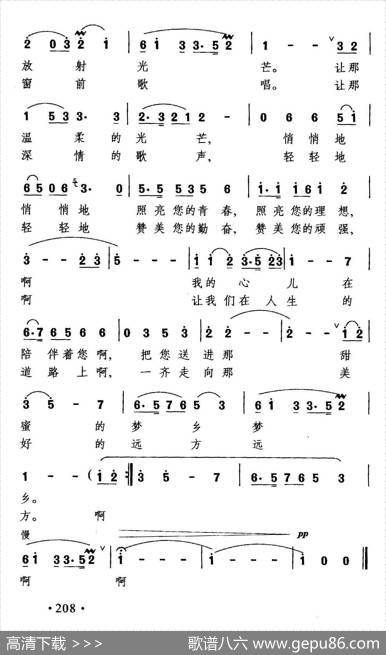 2 0 3 2 1 | 6 1 3 3·5 2 | 1 - - 3 2 |
放 射 光 芒。 让那
窗 前 歌 唱。 让那
1 5 3 3· 3 | 2·3 2 1 2 - | 0 6 6 5 1 |
温 柔 的 光 芒, 悄 悄 地
深 情 的 歌 声, 轻 轻 地
6 5 0 6 3· 0 | 6·5 3 5 6 | 1·1 1 6 1 2 |
悄 悄 地 照 亮 您 的 青 春, 照 亮 您 的 理 想,
轻 轻 地 赞 美 您 的 勤 奋, 赞 美 您 的 顽 强,
3 - - 2 3 | 5 - - - | 1 1 2 3·5 2 3 |
啊 我 的 心 儿 在
啊 让 我 们 在 人 生 的
6·7 6 5 6 6 | 0 3 5 3 5 | 2 - - 1 2 |
陪 伴 着 您 啊, 把 您 送 进 那 甜
道 路 上 啊, 一 齐 走 向 那 美
3 5 - 7 | 6·5 7 6 5 3 | 6 1 3 3·5 2 |
蜜 的 梦 乡 梦
好 的 远 方 远
1 - - (1 2 :| 3 5 - 7 | 6·5 7 6 5 3 |
乡。
方。 啊
慢 pp
6 1 3 3·5 2 | 1 - - - | 1 - - - | 1 0 0 |
啊 啊
· 208 ·
高清下载 >>> 歌谱八六 www.gepu86.com